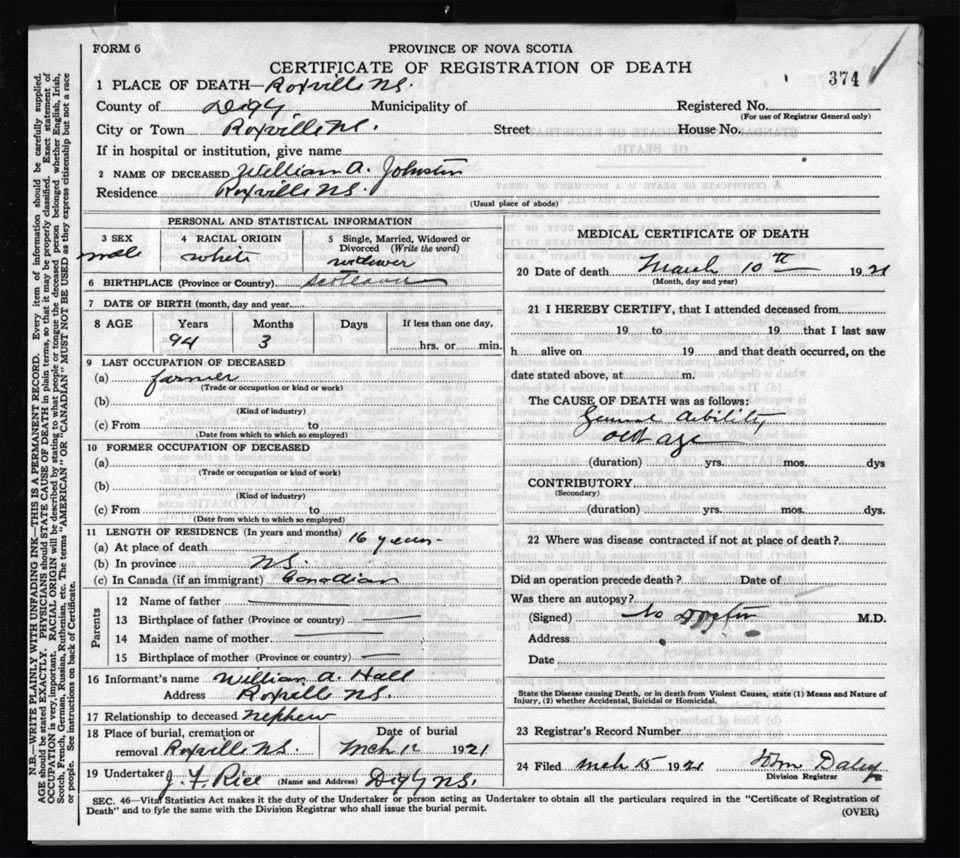 FORM 6
PROVINCE OF NOVA SCOTIA
CERTIFICATE OF REGISTRATION OF DEATH
374
1 PLACE OF DEATH—Roxville N.S.
County of Digby Municipality of Registered No.
(For use of Registrar General only)
City or Town Roxville N.S. Street House No.
If in hospital or institution, give name
2 NAME OF DECEASED William A. Johnston
Residence Roxville N.S.
(Usual place of abode)
PERSONAL AND STATISTICAL INFORMATION
3 SEX
male
4 RACIAL ORIGIN
white
5 Single, Married, Widowed or
Divorced (Write the word)
widower
6 BIRTHPLACE (Province or Country) Scotland
7 DATE OF BIRTH (month, day and year)
8 AGE Years Months Days If less than one day,
94 3 hrs. or min.
9 LAST OCCUPATION OF DECEASED
(a) farmer
(Trade or occupation or kind or work)
(b)
(Kind of industry)
(c) From to
(Date from which to which so employed)
10 FORMER OCCUPATION OF DECEASED
(a)
(Trade or occupation or kind of work)
(b)
(Kind of industry)
(c) From to
(Date from which to which so employed)
11 LENGTH OF RESIDENCE (In years and months) 16 years
(a) At place of death
(b) In province N.S.
(c) In Canada (if an immigrant) Canadian
Parents
12 Name of father
13 Birthplace of father (Province or country)
14 Maiden name of mother
15 Birthplace of mother (Province or country)
16 Informant's name William A. Hall
Address Roxville N.S.
17 Relationship to deceased nephew
18 Place of burial, cremation or
removal Roxville N.S.
Date of burial
Mch 12 1921
19 Undertaker J. F. Rice (Name and Address) Digby N.S.
MEDICAL CERTIFICATE OF DEATH
20 Date of death March 10th 1921
(Month, day and year)
21 I HEREBY CERTIFY, that I attended deceased from
19 to 19 that I last saw
h alive on 19 and that death occurred, on the
date stated above, at m.
The CAUSE OF DEATH was as follows:
General debility
old age
(duration) yrs. mos. dys
CONTRIBUTORY
(Secondary)
(duration) yrs. mos. dys.
22 Where was disease contracted if not at place of death?
Did an operation precede death? Date of
Was there an autopsy?
(Signed) No Doctor M.D.
Address
Date
State the Disease causing Death, or in death from Violent Causes, state (1) Means and Nature of
Injury, (2) whether Accidental, Suicidal or Homicidal.
23 Registrar's Record Number
24 Filed Mch 15 1921 Wm Daley
Division Registrar
SEC. 46—Vital Statistics Act makes it the duty of the Undertaker or person acting as Undertaker to obtain all the particulars required in the "Certificate of Registration of
Death" and to fyle the same with the Division Registrar who shall issue the burial permit.
(OVER)
N.B.—WRITE PLAINLY WITH UNFADING INK—THIS IS A PERMANENT RECORD. Every item of information should be carefully supplied.
AGE should be stated EXACTLY. PHYSICIANS should STATE CAUSE OF DEATH in plain terms, so that it may be properly classified. Exact statement of
OCCUPATION is very important. RACIAL ORIGIN will be described by stating to what people or tongue the deceased person belonged whether English, Irish,
Scotch, French, German, Russian, Ruthenian, etc. The terms "AMERICAN" OR "CANADIAN" MUST NOT BE USED as they express citizenship but not a race
or people. See instructions on back of Certificate.